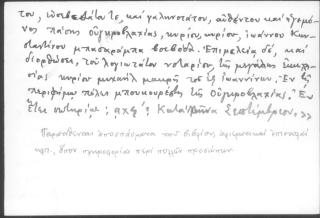 του, εὐσεβεστάτου τε, καὶ γαληνοτάτου, αὐθέντου καὶ ἡγεμό-
νος πάσης Οὐγκροβλαχίας, κυρίου, κυρίου, Ἰωάννου Κων-
σταντίνου μπασαράμπα βοεβόδα. Ἐπιμελείᾳ δέ, καὶ
διορθώσει, τοῦ λογιωτάτου νοταρίου, τῆς μεγάλης ἐκκλη-
σίας κυρίου μιχαὴλ μακρῆ τοῦ ἐξ ἰωαννίνων. Ἐν τῇ
περιφήμῳ πόλει μπουκουρέστι τῆς Οὐγκροβλαχίας. Ἐν
ἔτει σωτηρίῳ: αχϟ΄: Κατὰ Μῆνα Σεπτέμβριον.»
Παρατίθενται ἀποσπάσματα τοῦ βιβλίου, ἀφιερωτικαὶ ἐπιστολαὶ
κφ., ὅπου πληροφορίαι περὶ πολλῶν προσώπων.